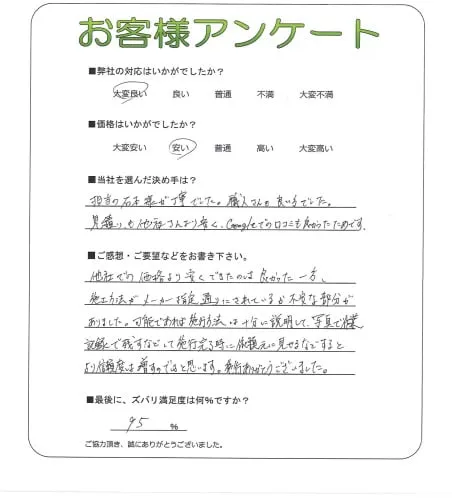 お客様アンケート
■弊社の対応はいかがでしたか？
大変良い 良い 普通 不満 大変不満
■価格はいかがでしたか？
大変安い 安い 普通 高い 大変高い
■当社を選んだ決め手は？
担当の石本様が丁寧でした。職人さんも良い方でした。
見積りも他社さんより安く、Googleでの口コミも良かったためです。
■ご感想・ご要望などをお書き下さい。
他社での価格より安くできたのは良かった一方、
施工方法がメーカー指定通りにされているか不安な部分が
ありました。可能であれば施行方法は十分に説明して、写真で作業
記録で残すなどして施行完了時に依頼元に見せるなどすると
より信頼度は増すのではと思います。ありがとうございました。
■最後に、ズバリ満足度は何%ですか？
95 %
ご協力頂き、誠にありがとうございました。